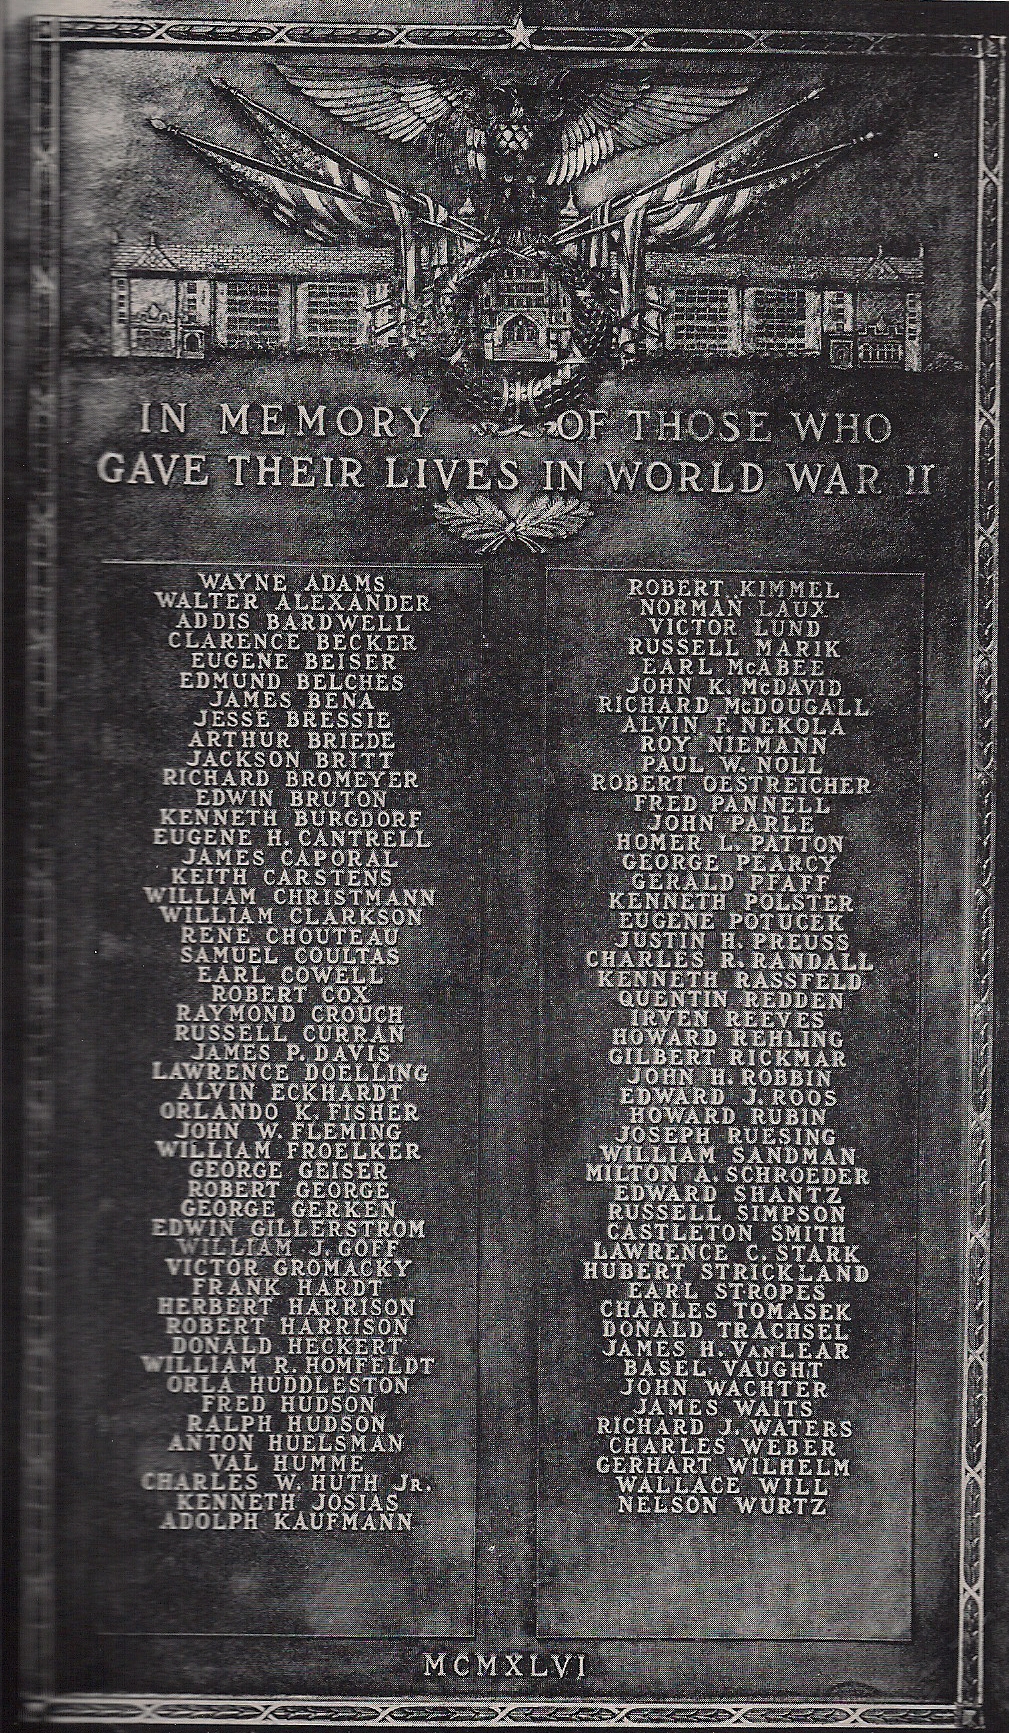 IN MEMORY OF THOSE WHO
GAVE THEIR LIVES IN WORLD WAR II
WAYNE ADAMS
WALTER ALEXANDER
ADDIS BARDWELL
CLARENCE BECKER
EUGENE BEISER
EDMUND BELCHES
JAMES BENA
JESSE BRESSIE
ARTHUR BRIEDE
JACKSON BRITT
RICHARD BROMEYER
EDWIN BRUTON
KENNETH BURGDORF
EUGENE H. CANTRELL
JAMES CAPORAL
KEITH CARSTENS
WILLIAM CHRISTMANN
WILLIAM CLARKSON
RENE CHOUTEAU
SAMUEL COULTAS
EARL COWELL
ROBERT COX
RAYMOND CROUCH
RUSSELL CURRAN
JAMES P. DAVIS
LAWRENCE DOELLING
ALVIN ECKHARDT
ORLANDO K. FISHER
JOHN W. FLEMING
WILLIAM FROELKER
GEORGE GEISER
ROBERT GEORGE
GEORGE GERKEN
EDWIN GILLERSTROM
WILLIAM J. GOFF
VICTOR GROMACKY
FRANK HARDT
HERBERT HARRISON
ROBERT HARRISON
DONALD HECKERT
WILLIAM R. HOMFELDT
ORLA HUDDLESTON
FRED HUDSON
RALPH HUDSON
ANTON HUELSMAN
VAL HUMME
CHARLES W. HUTH JR.
KENNETH JOSIAS
ADOLPH KAUFMANN
ROBERT KIMMEL
NORMAN LAUX
VICTOR LUND
RUSSELL MARIK
EARL McABEE
JOHN K. McDAVID
RICHARD McDOUGALL
ALVIN F. NEKOLA
ROY NIEMANN
PAUL W. NOLL
ROBERT OESTREICHER
FRED PANNELL
JOHN PARLE
HOMER L. PATTON
GEORGE PEARCY
GERALD PFAFF
KENNETH POLSTER
EUGENE POTUCEK
JUSTIN H. PREUSS
CHARLES R. RANDALL
KENNETH RASSFELD
QUENTIN REDDEN
IRVEN REEVES
HOWARD REHLING
GILBERT RICKMAR
JOHN H. ROBBIN
EDWARD J. ROOS
HOWARD RUBIN
JOSEPH RUESING
WILLIAM SANDMAN
MILTON A. SCHROEDER
EDWARD SHANTZ
RUSSELL SIMPSON
CASTLETON SMITH
LAWRENCE C. STARK
HUBERT STRICKLAND
EARL STROPES
CHARLES TOMASEK
DONALD TRACHSEL
JAMES H. VanLEAR
BASEL VAUGHT
JOHN WACHTER
JAMES WAITS
RICHARD J. WATERS
CHARLES WEBER
GERHART WILHELM
WALLACE WILL
NELSON WURTZ
MCMXLVI